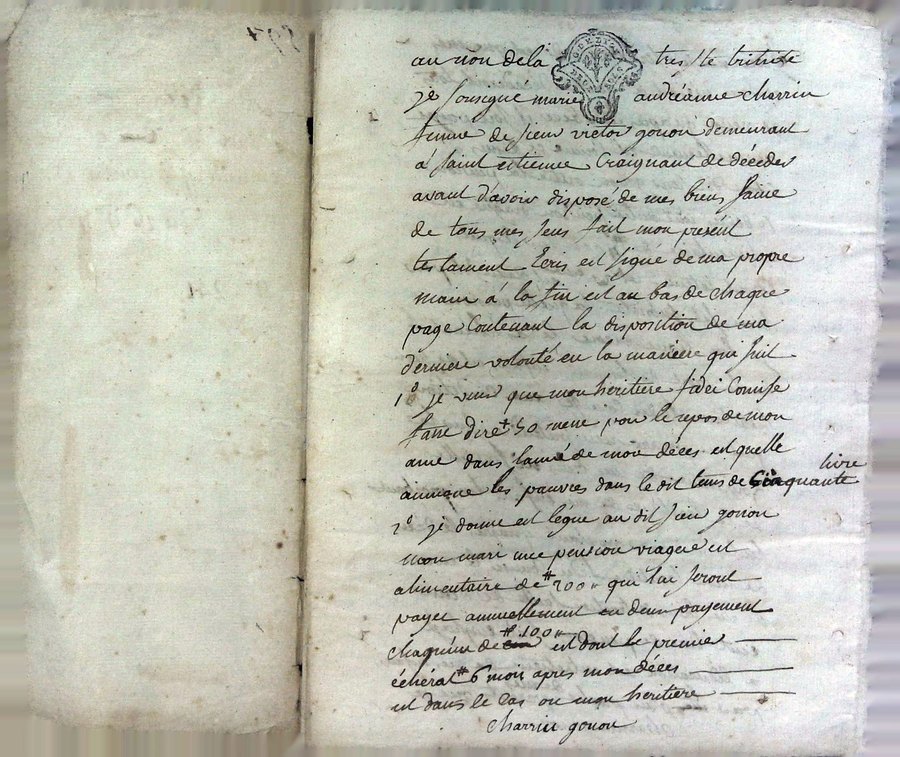 au non de la tres Ste trinite
je sousigné marie andréanne charrin
femme de sieur victor gonon demeurant
à saint estienne Craignant de décéder
avant d'avoir disposé de mes biens saine
de tous mes sens fait mon présént
testament Ecris est signé de ma propre
main á la fin est au bas de chaque
page Contenant la disposition de ma
derniere volonté en la maniere qui suit
1º je veux que mon heritiere fidei Comise
fasse dire + 50 messe pour le repos de mon
ame dans l'anné de mon déces est quelle
aumone les pauvres dans le dit tems de Cinquante livre
2º je donne est légue au dit sieu gonon
mon mari une pension viagere est
alimentaire de # 200 " qui lui seront
payer annuellement en deux payement
chaqu'un de # 100 " est dont le premier
échérat # 6 mois apres mon déces
est dans le cas ou mon heritiere
charrin gonon